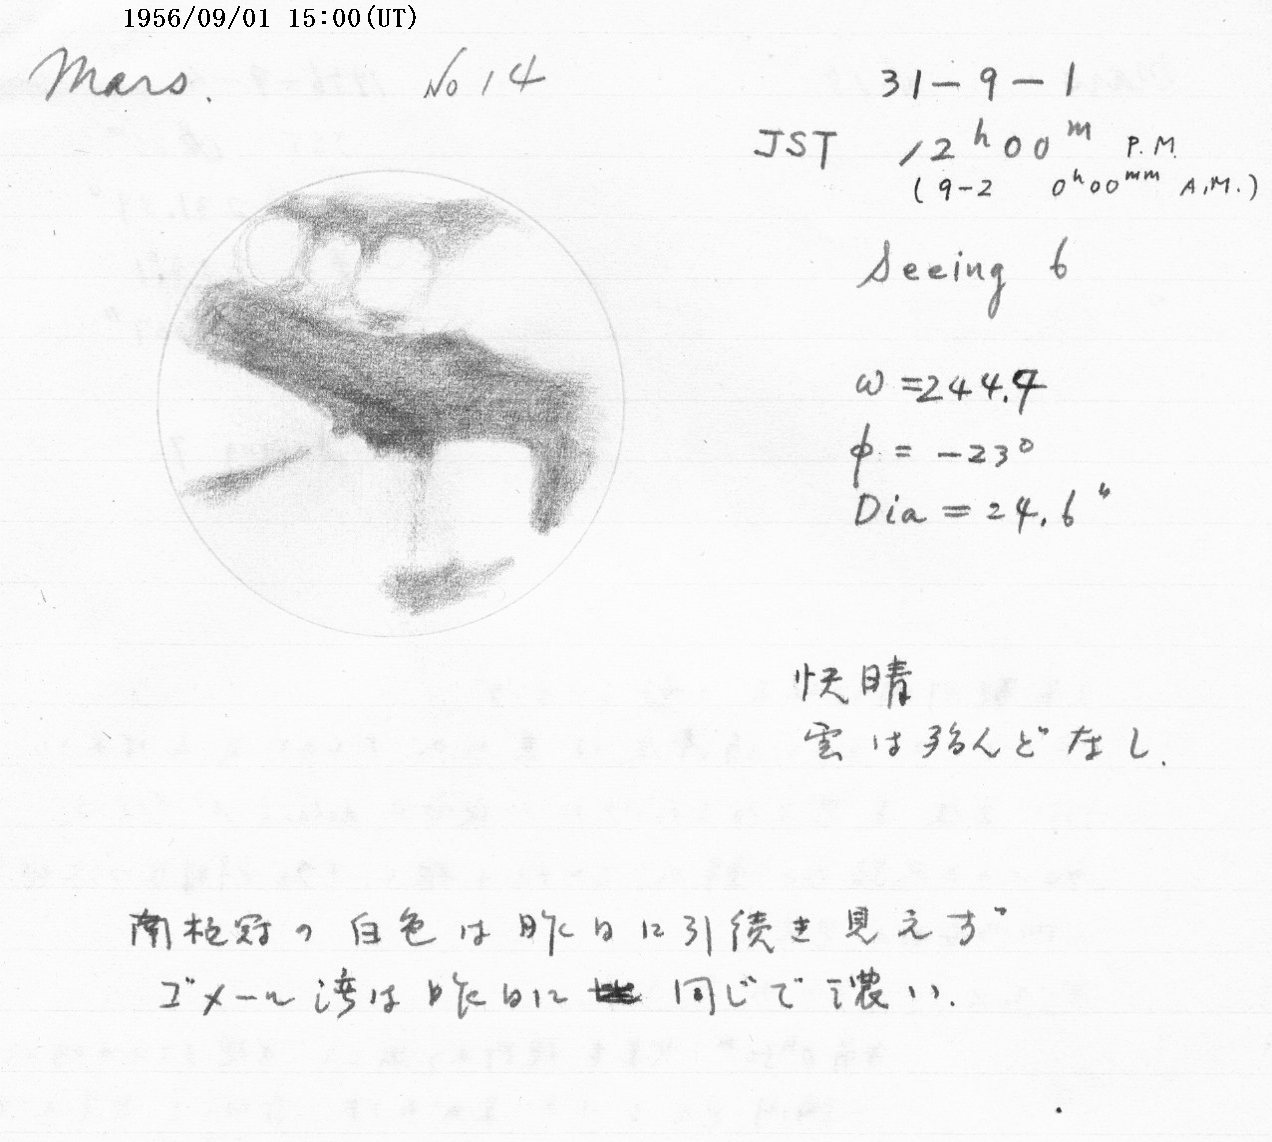 1956/09/01 15:00(UT)
Mars. No 14
31-9-1
JST 12h00m P.M.
(9-2 0h00mm A.M.)
Seeing 6
ω=244.4
φ = -23°
Dia = 24.6"
快晴
雲は殆んどなし.
南極冠の白色は昨日に引続き見えず
ゴメール湾は昨日に 同じで濃い.